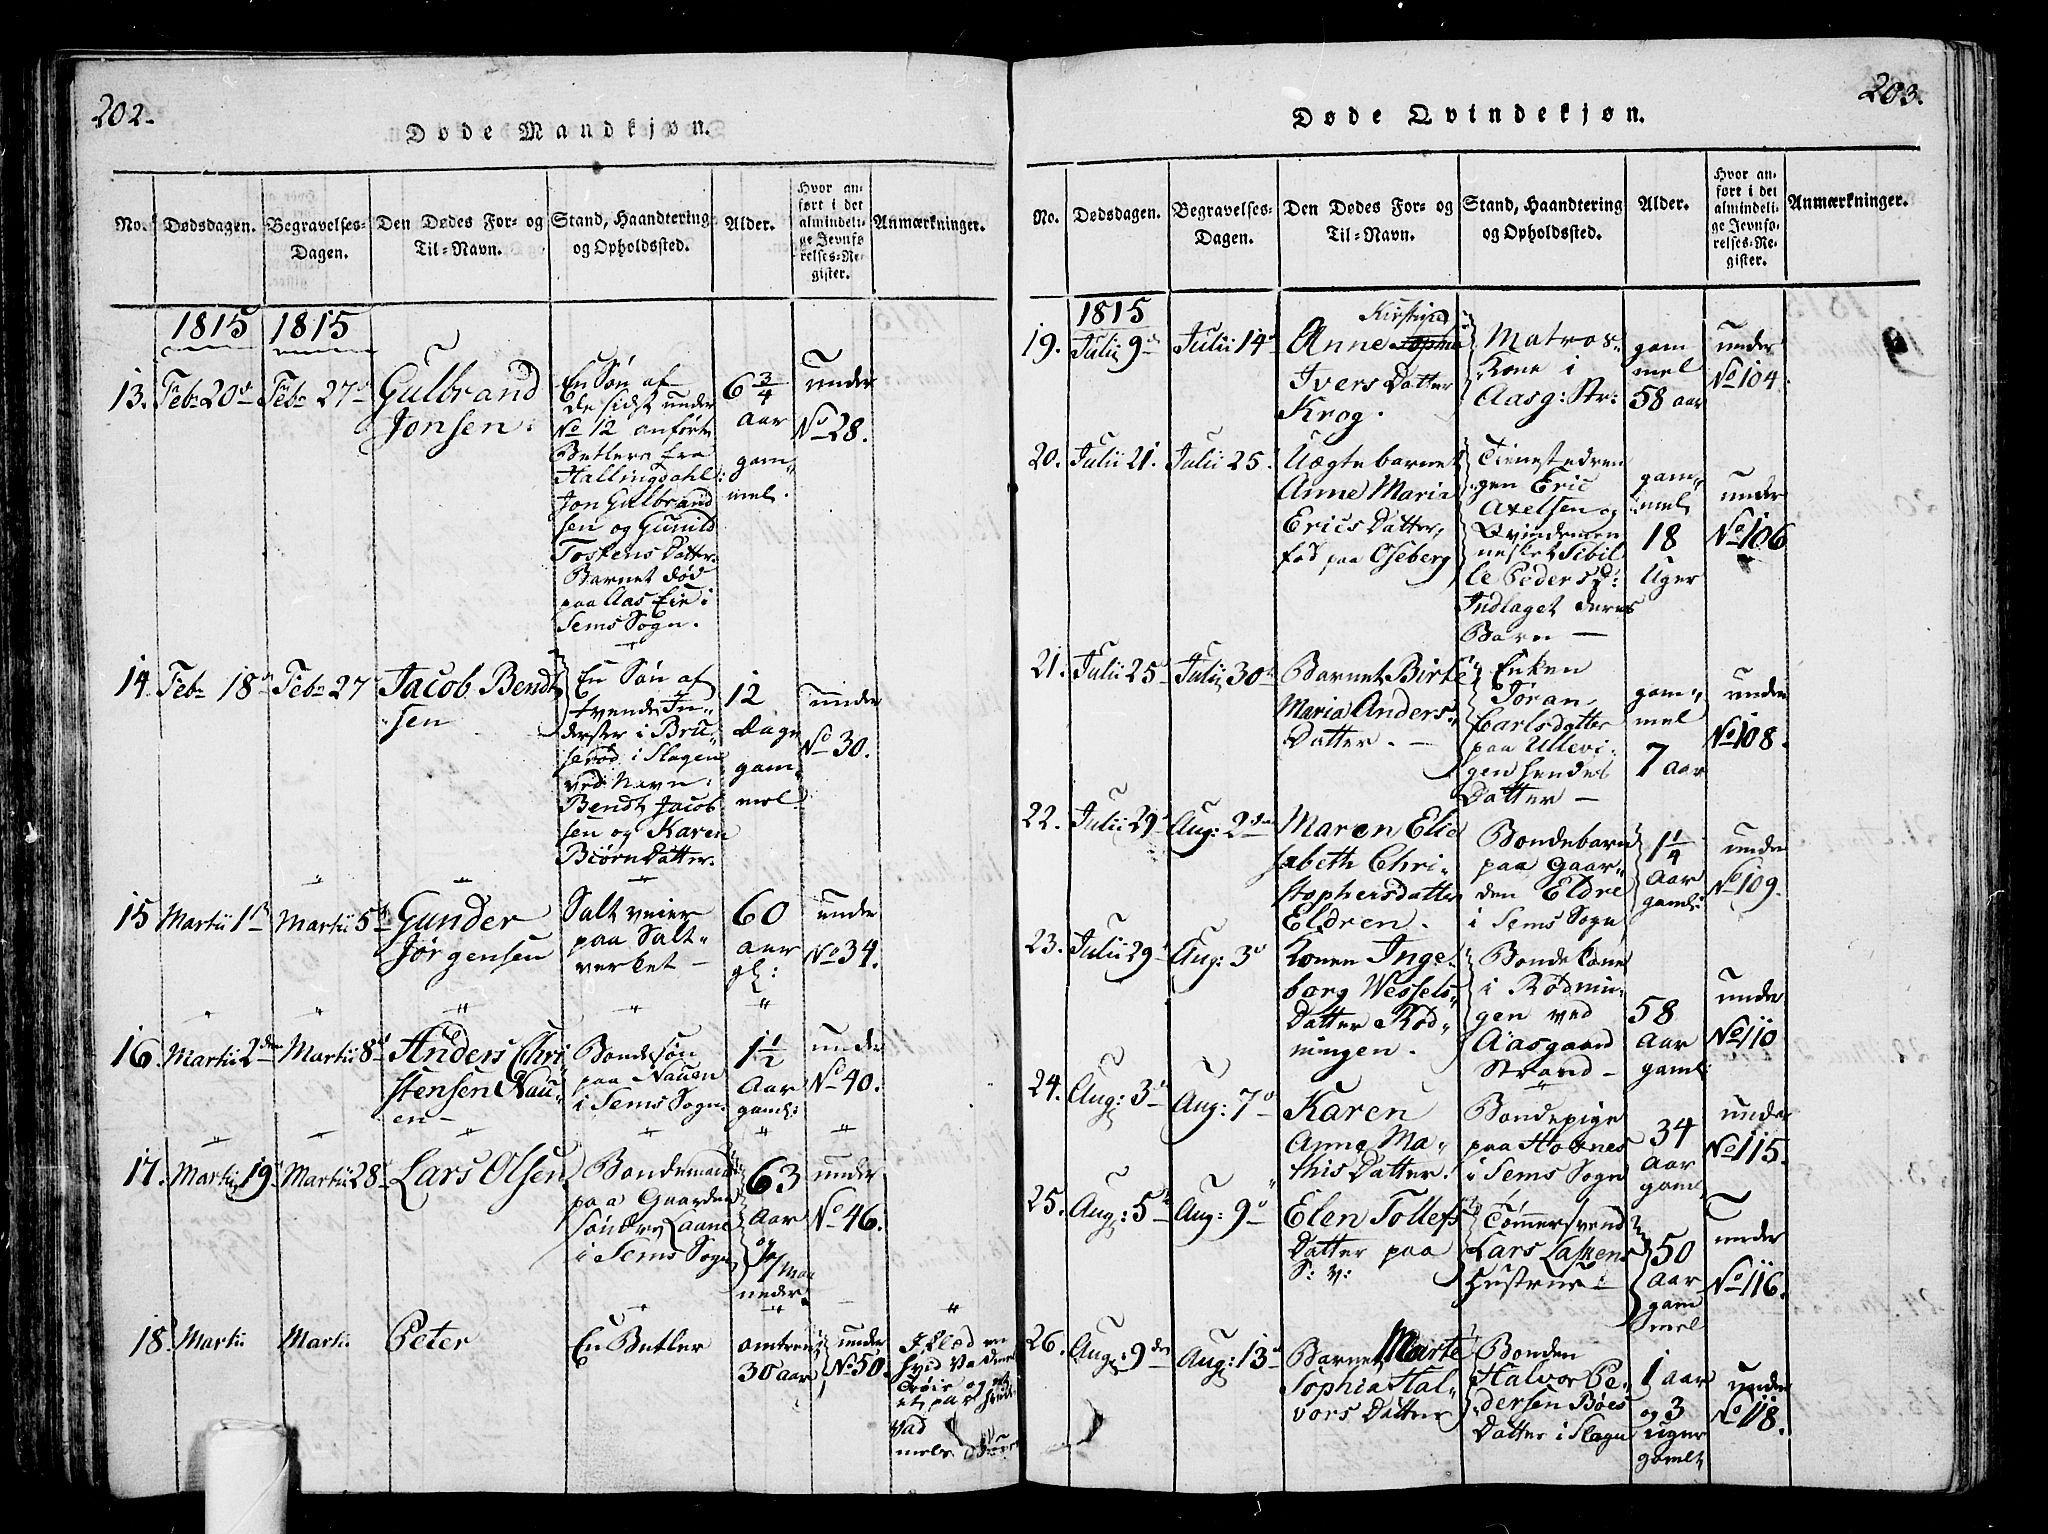 202.
Døde Mandkjøn.
No.
Dødsdagen.
Begravelses-
Dagen.
Den Dødes For- og
Til-Navn.
Stand, Haandtering
og Opholdssted.
Alder.
Hvor an-
ført i det
almindeli-
ge Jevnfø-
relses-Re-
gister.
Anmærkninger.
1815 1815
13. Febr 20de Febr 27de
Gulbrand
Jonsen.
En Søn af
de sidst under
No 12 anførte
Betlere fra
Hallingdahl:
Jon Gulbrand
sen og Gunild
Tostens Datter.
Barnet død
paa Aas Eie i
Sems Sogn.
6 3/4
Aar
gam„
mel.
under
No 28.
14. Febr 18de Febr 27
Jacob Bendt
sen
En Søn af
tvende In„
derster i Bru„
serød i Slagen
ved Navn:
Bendt Jacob
sen og Karen
Biørn Datter.
12
Dage
gam„
mel.
under
No 30.
15 Martii 1ste Martii 5te
Gunder
Jørgensen
Salt veier
paa Salt„
verket –
60
aar
gl:
under
No 34.
16. Martii 2den Martii 8de
Anders Chri
stensen Nau„
en –
Bondesøn
paa Nauen
i Sems Sogn.
1 1/2
Aar
gaml:
under
No 40.
17. Martii 19de Martii 28de
Lars Olsen
Bondemand
paa Gaarden
søndre
i Sems Sogn
63
Aar
og
Maa
neder.
under
No 46.
18. Martii Martii
Peter
En Betler
omtrent
30 aar
under
No 50.
I klæd en
hvid Vadmels
Trøie og et
par
Vad
mels
203.
Døde Qvindekjøn.
No.
Dødsdagen.
Begravelses-
Dagen.
Den Dødes For- og
Til-Navn.
Stand, Haandtering
og Opholdssted.
Alder.
Hvor an-
ført i det
almindeli-
ge Jevnfø-
relses-Re-
gister.
Anmærkninger.
1815
19. Julii 9de Julii 14de
Kirstine
Anne Sophia
Ivers Datter
Krog.
Matros„
Kone i
Aasg: Str:
gam
mel
58 aar
under
No 104.
20. Julii 21. Julii 25.
Uægte barnet
Anne Maria
Erics Datter,
fød paa Oseberg
Tienestedren
gen Eric
Axelsen og
Qvindemen
nesket Sibil
le Peders D:
Indlaget deres
Barn –
gam„
mel
18
Uger
under
No 106
21. Julii 25de Julii 30de
Barnet Birte
Maria Anders„
Datter. –
Enken
Joran
Carlsdatter
paa Ullevi„
gen hendes
Datter –
gam„
mel
7 aar
under
No 108.
22. Julii 29de Aug: 2den
Maren Elie
sabeth Chri„
stophersdatter
Eldren.
Bondebarn
paa Gaar„
den Eldre
i Sems Sogn
1 1/4
Aar
gaml:
under
No 109.
23. Julii 29de Aug: 3de
Konen Inge„
borg Wessels„
Datter Rød„
ningen.
Bondekone
i Rødnin„
gen ved
Aasgaard
Strand –
58
Aar
gaml
under
No 110
24. Aug: 3de Aug: 7de
Karen
Anne Ma„
this Datter.
Bondepige
paa Hotnes
i Sems Sogn
34
Aar
gaml
under
No 115.
25. Aug: 5te Aug: 9de
Elen Tollefs
Datter paa
S: V:
Tømmersvend
Lars
Hustrue –
50
Aar
gam
mel
under
No 116.
26. Aug: 9de Aug: 13de
Barnet Marte
Sophia Hal„
vors Datter
Bonden
Halvor Pe„
dersen Bøes
Datter i Slagn
1 aar
og 3
uger
gamlt
under
No 118.